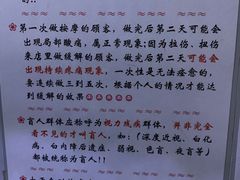 第一次做按摩的顾客，做完后第二天可能会
出现局部酸痛，属正常现象；因为拉伤、扭伤
来店里做缓解的顾客，做完后第二天可能会
出现持续疼痛现象，一次性是无法痊愈的，
要连续做三到五次，根据个人的情况才能达
到缓解的效果
盲人群体应称呼为视力残疾群体，并非完全
看不见的才叫盲人，如：（深度近视、白化
病、白内障后遗症、弱视、色盲、夜盲等）
都被统称为盲人！！